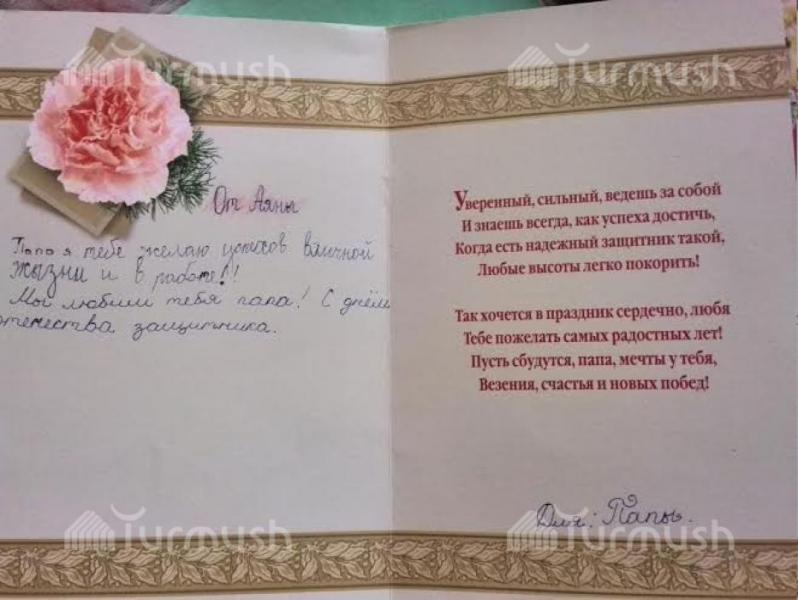 Turmush
Turmush
От Аяны
Папа я тебе желаю успехов вличной
жызни и в работе!!
Мы любим тебя папа! С днём
отечества защитника.
Уверенный, сильный, ведешь за собой
И знаешь всегда, как успеха достичь,
Когда есть надежный защитник такой,
Любые высоты легко покорить!
Так хочется в праздник сердечно, любя
Тебе пожелать самых радостных лет!
Пусть сбудутся, папа, мечты у тебя,
Везения, счастья и новых побед!
Для: Папы.
Turmush
Turmush